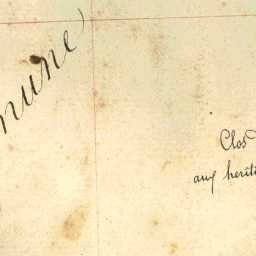 mune)
Clos
aux hériti